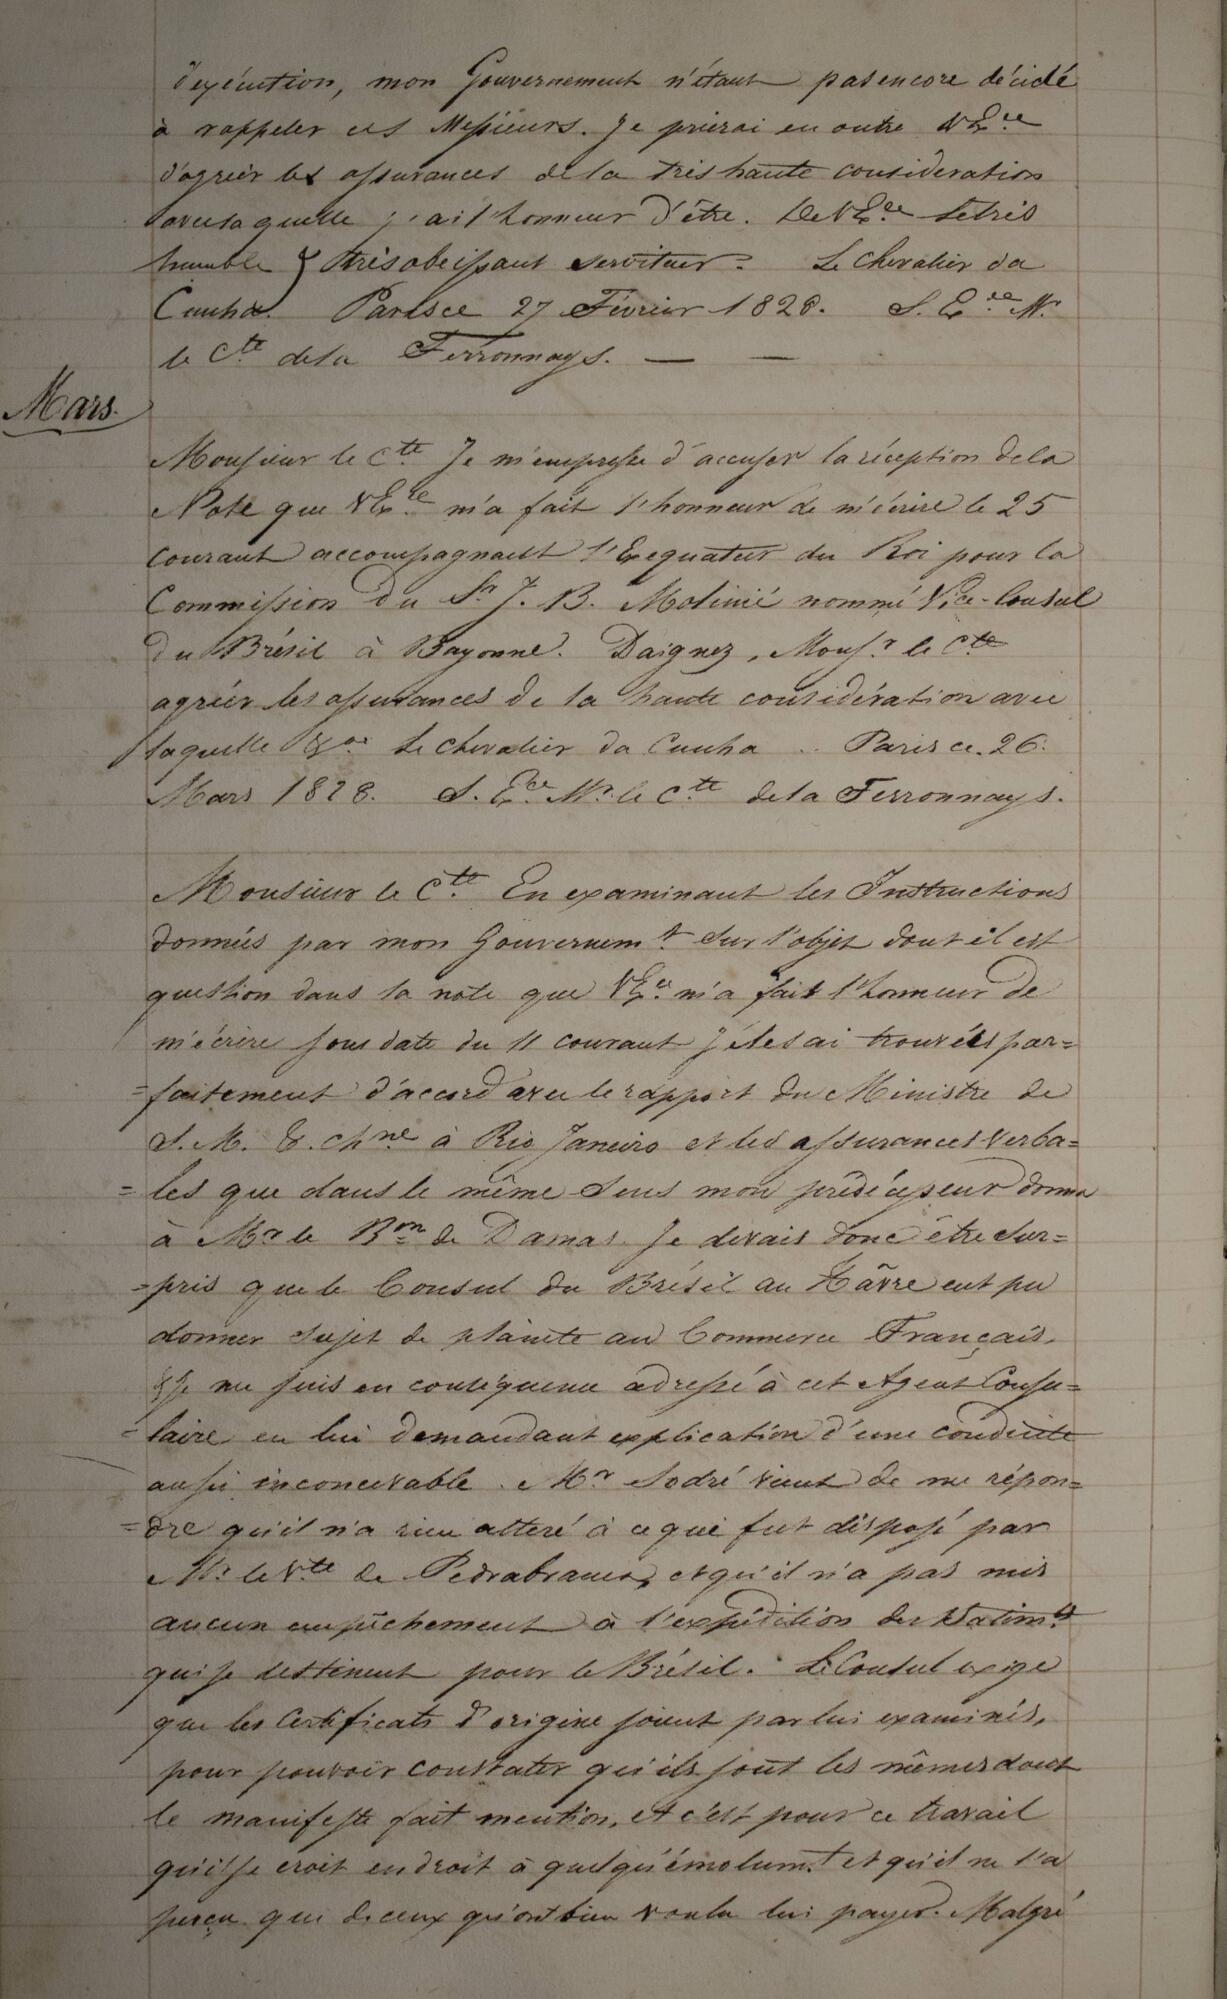 d'exécution, mon Gouvernement n'étant pas encore décidé
à rappeler ces Messieurs. Je prierai en outre V Ex.ce
d'agréer les assurances de la très haute consideration
avec laquelle j'ai l'honneur d'être. De V Ex.ce Le très
humble & très obeissant serviteur = Le Chevalier da
Cunha. Paris ce 27 Février 1828. S. E.ce Mr.
le C.te de la Ferronnays. — —
Mars.
Monsieur le C.te Je m'empresse d'accuser la réception de la
Note que V Ex.ce m'a fait l'honneur de m'écrire le 25
courant accompagnant l'Exequatur du Roi pour la
Commission du Sr J. B. Molinié nommé Vice-Consul
du Brésil à Bayonne. Daignez, Mons.r le C.te
agréer les assurances de la haute considération avec
laquelle &ca Le Chevalier da Cunha .. Paris ce 26.
Mars 1828. S. E.ce Mr. le C.te de la Ferronnays.
Monsieur le C.te En examinant les Instructions
données par mon Gouvernem.t sur l'objet dont il est
question dans la note que V Ex.ce m'a fait l'honneur de
m'écrire sous date du 11 courant je les ai trouvées par=
=faitement d'accord avec le rapport du Ministre de
S. M. T. Chne à Rio Janeiro et les assurances verba=
=les que dans le même sens mon prédécesseur donna
à Mr le Bon de Damas. Je devais donc être sur=
=pris que le Consul du Brésil au Hâvre eut pu
donner sujet de plainte au Commerce Français.
& Je me suis en conséquence adressé à cet Agent Consu=
=laire en lui demandant explication d'une conduite
aussi inconcevable. Mr Sodré vient de me répon=
=dre qu'il n'a rien alteré à ce qui fut disposé par
Mr. le V.te de Pedrabranca, et qu'il n'a pas mis
aucun empêchement à l'expédition des Batim.ts
qui se destinent pour le Brésil. Le Consul exige
que les Certificats d'origine soient par lui examinés,
pour pouvoir constater qu'ils sont les mêmes dont
le manifeste fait mention, et c'est pour ce travail
qu'il se croit en droit à quelqu'émolum.t et qu'il ne l'a
perçu que de ceux qu'ont bien voulu lui payer. Malgré